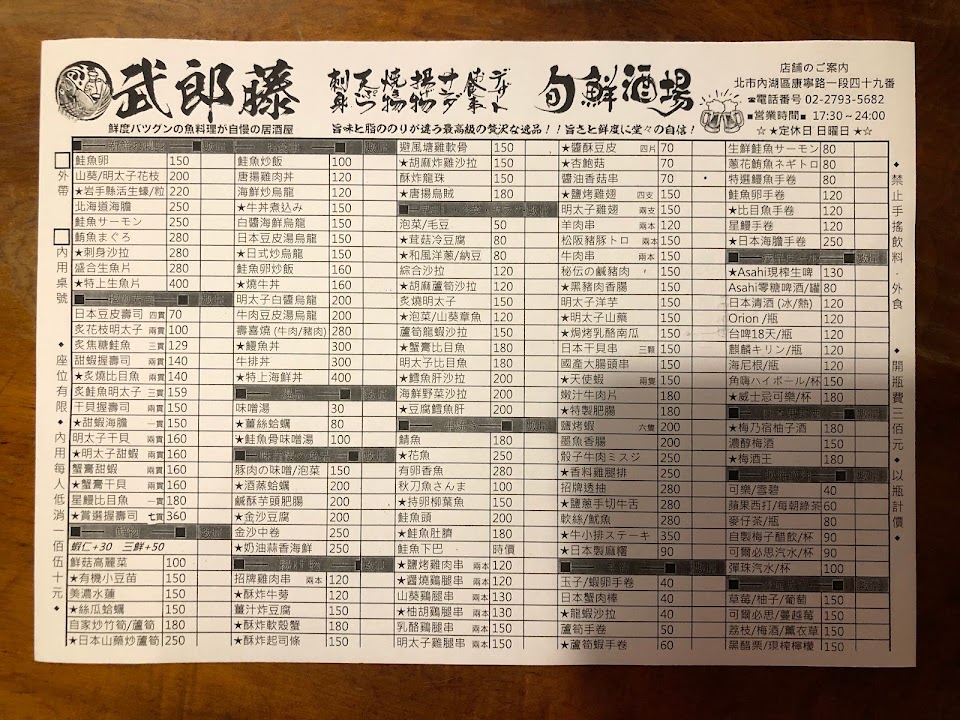 武郎藤
鮮度バツグンの魚料理が自慢の居酒屋
刺身 天ぷら 焼物 揚物 サラダ お食事 デザート
旬鮮酒場
旨味と脂ののりが違う最高級の贅沢な逸品！！旨さと鮮度に堂々の自信！
店舗のご案內
北市內湖區康寧路一段四十九番
☎電話番号 02-2793-5682
■営業時間■ 17:30～24:00
☆★定休日 日曜日★☆
外帶
內用桌號
◆座位有限◆內用每人低消一佰伍十元◆
鮭魚卵 150
山葵/明太子花枝 200
★岩手縣活生蠔/粒 220
北海道海膽 250
鮭魚サーモン 250
鮪魚まぐろ 280
★刺身沙拉 280
盛合生魚片 280
★特上生魚片 400
日本豆皮壽司 四貫 70
炙花枝明太子 兩貫 100
炙焦糖鮭魚 三貫 129
甜蝦握壽司 兩貫 140
★炙燒比目魚 兩貫 140
炙鮭魚明太子 三貫 159
干貝握壽司 兩貫 150
★甜蝦海膽 一貫 150
明太子干貝 兩貫 160
★明太子甜蝦 兩貫 160
蟹膏甜蝦 兩貫 160
★蟹膏干貝 兩貫 160
星鰻比目魚 一貫 180
★賞選握壽司 七貫 360
蝦仁+30 三鮮+50
鮮菇高麗菜 100
★有機小豆苗 150
美濃水蓮 150
★絲瓜蛤蠣 150
自家炒竹筍/蘆筍 180
★日本山藥炒蘆筍 250
鮭魚炒飯 100
唐揚雞肉丼 120
海鮮炒烏龍 120
★牛丼煮込み 150
白醬海鮮烏龍 150
日本豆皮湯烏龍 150
★日式炒烏龍 150
鮭魚卵炒飯 160
★燒牛丼 160
明太子白醬烏龍 200
牛肉豆皮湯烏龍 200
壽喜燒 (牛肉/豬肉) 280
★鰻魚丼 300
牛排丼 300
★特上海鮮丼 400
味噌湯 30
★薑絲蛤蠣 80
★鮭魚骨味噌湯 100
豚肉の味噌/泡菜 150
★酒蒸蛤蠣 200
鹹酥芋頭肥腸 200
★金沙豆腐 200
金沙中卷 250
★奶油蒜香海鮮 250
招牌雞肉串 兩本 120
★酥炸牛蒡 120
薑汁炸豆腐 150
★酥炸軟殼蟹 180
★酥炸起司條 150
避風塘雞軟骨 150
★胡麻炸雞沙拉 150
酥炸龍珠 150
★唐揚烏賊 180
泡菜/毛豆 50
★茸菇冷豆腐 80
★和風洋蔥/納豆 80
綜合沙拉 120
★胡麻蘆筍沙拉 120
炙燒明太子 150
★泡菜/山葵章魚 150
蘆筍龍蝦沙拉 150
★蟹膏比目魚 180
明太子比目魚 180
★鱈魚肝沙拉 200
海鮮野菜沙拉 200
★豆腐鱈魚肝 200
鯖魚 180
★花魚 250
有卵香魚 280
秋刀魚さんま 100
★持卵柳葉魚 150
鮭魚頭 200
★鮭魚肚臍 180
鮭魚下巴 時價
★鹽烤雞腿串 兩本 120
★醬燒鷄腿串 兩本 120
山葵鷄腿串 兩本 130
★柚胡鷄腿串 兩本 130
乳酪鷄腿串 兩本 150
明太子雞腿串 兩本 150
★醬酥豆皮 四片 70
★杏鮑菇 70
醬油香菇串 70
★鹽烤雞翅 四支 150
明太子雞翅 兩支 150
羊肉串 兩本 120
松阪豬豚トロ 兩本 150
牛肉串 兩本 150
秘伝の鹹豬肉 150
★黑豬肉香腸 150
明太子洋芋 150
★明太子山藥 150
★焗烤乳酪南瓜 150
日本干貝串 三顆 150
國產大腸頭串 150
★天使蝦 兩隻 150
嫩汁牛肉片 180
★特製肥腸 180
鹽烤蝦 六隻 200
墨魚香腸 200
骰子牛肉ミスジ 250
★香料雞腿排 250
招牌透抽 280
★鹽蔥手切牛舌 280
軟絲/魷魚 280
★牛小排ステーキ 350
★日本製麻糬 90
玉子/蝦卵手卷 40
日本蟹肉棒 40
★龍蝦沙拉 40
蘆筍手卷 50
★蘆筍蝦手卷 60
生鮮鮭魚サーモン 80
蔥花鮪魚ネギトロ 80
特選鰻魚手卷 80
鮭魚卵手卷 120
★比目魚手卷 120
星鰻手卷 120
★日本海膽手卷 250
★Asahi現榨生啤 130
Asahi零糖啤酒/罐 80
日本清酒 (冰/熱) 120
Orion /瓶 120
台啤18天/瓶 120
麒麟キリン/瓶 120
海尼根/瓶 120
角嗨ハイボール/杯 150
★威士忌可樂/杯 180
★梅乃宿柚子酒 180
濃醇梅酒 150
★梅酒王 180
可樂/雪碧 40
蘋果西打/每朝綠茶 60
麥仔茶/瓶 80
自製梅子醋飲/杯 90
可爾必思汽水/杯 90
彈珠汽水/杯 100
草莓/柚子/葡萄 150
可爾必思/蔓越莓 150
荔枝/梅酒/薰衣草 150
黑醋栗/現榨檸檬 150
◆禁止手搖飲料・外食
◆開瓶費三佰元◆以瓶計價◆